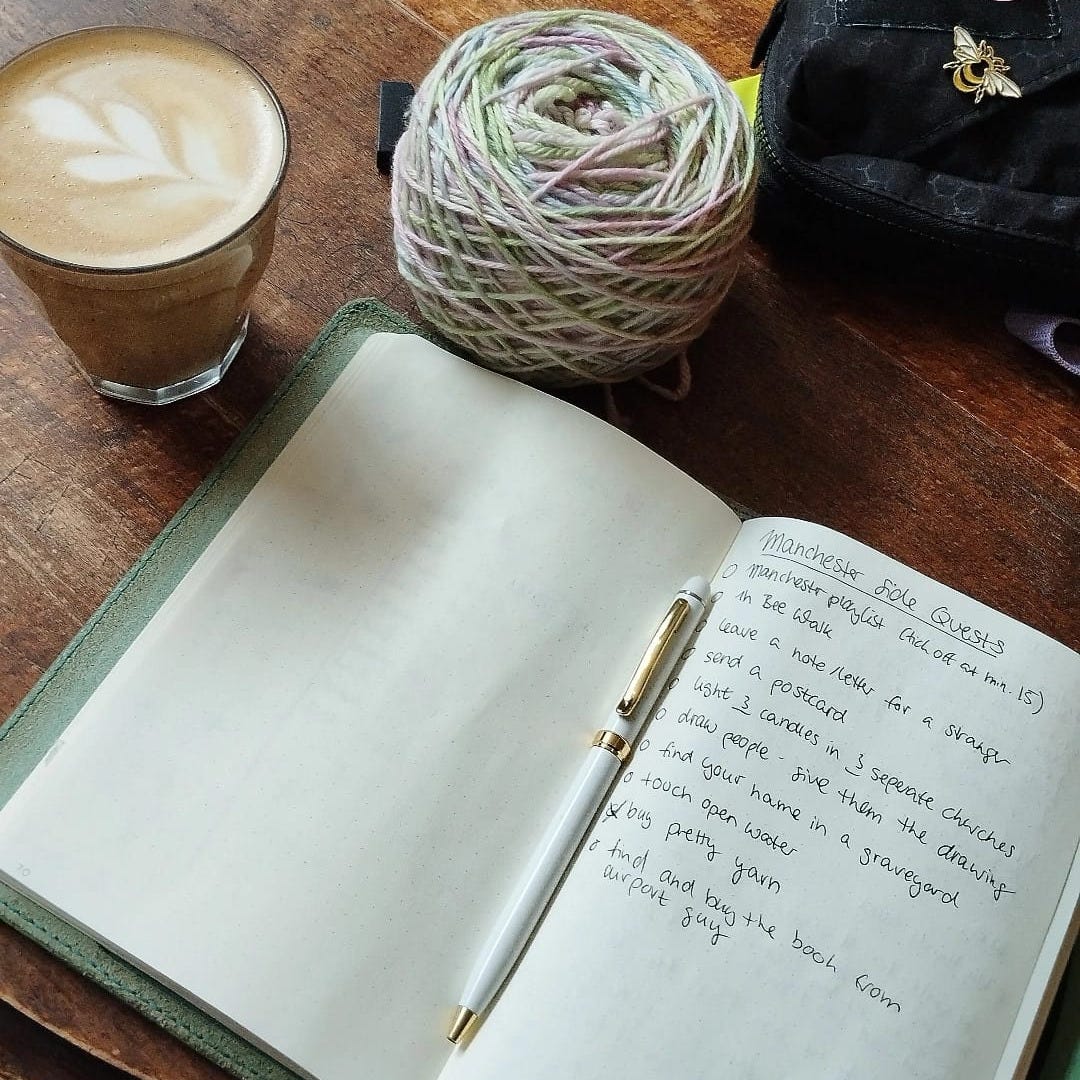 Manchester Side Quests
Manchester playlist (tick off at min. 15)
1h Bee Walk
leave a note/letter for a stranger
send a postcard
light 3 candles in 3 seperate churches
draw people - give them the drawing
find your name in a graveyard
touch open water
buy pretty yarn
find and buy the book from
airport guy
70